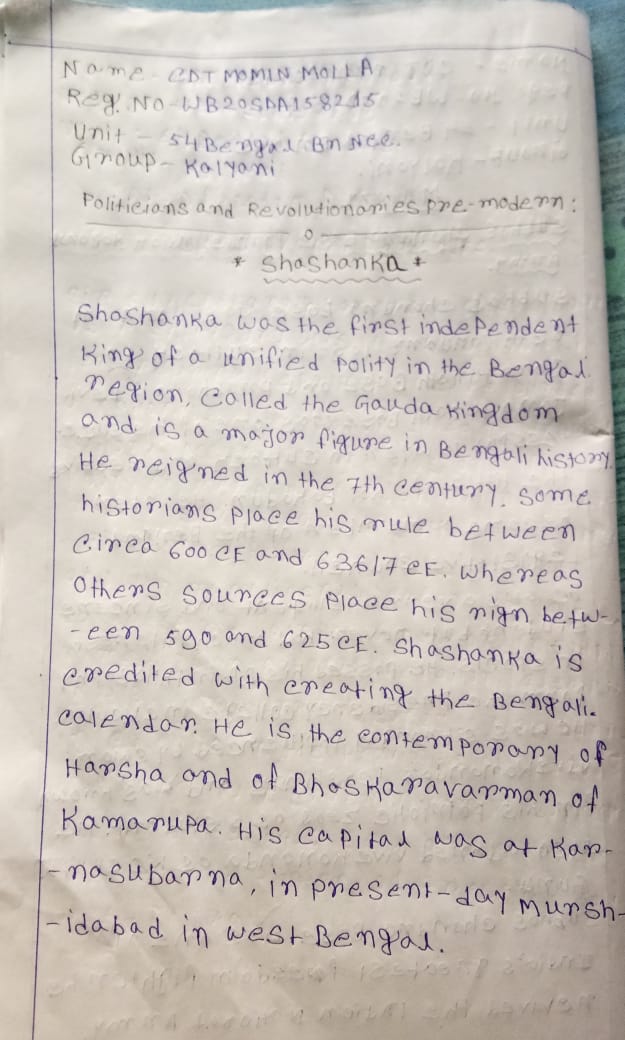 Name - CDT MOMIN MOLLA
Reg. No - WB20SDA158215
Unit - 54 Bengal Bn Ncc.
Group - Kalyani
Politicians and Revolutionaries pre-modern:
* Shashanka *
Shashanka was the first independent
King of a unified polity in the Bengal
region, called the Gauda Kingdom
and is a major figure in Bengali history.
He reigned in the 7th century. some
historians place his rule between
circa 600 CE and 636/7 CE. whereas
others sources place his rign betw-
-een 590 and 625 CE. Shashanka is
credited with creating the Bengali.
calendar. He is the contemporary of
Harsha and of Bhaskaravarman of
Kamarupa. His capital was at Kar-
-nasubarna, in present-day Mursh-
-idabad in west Bengal.